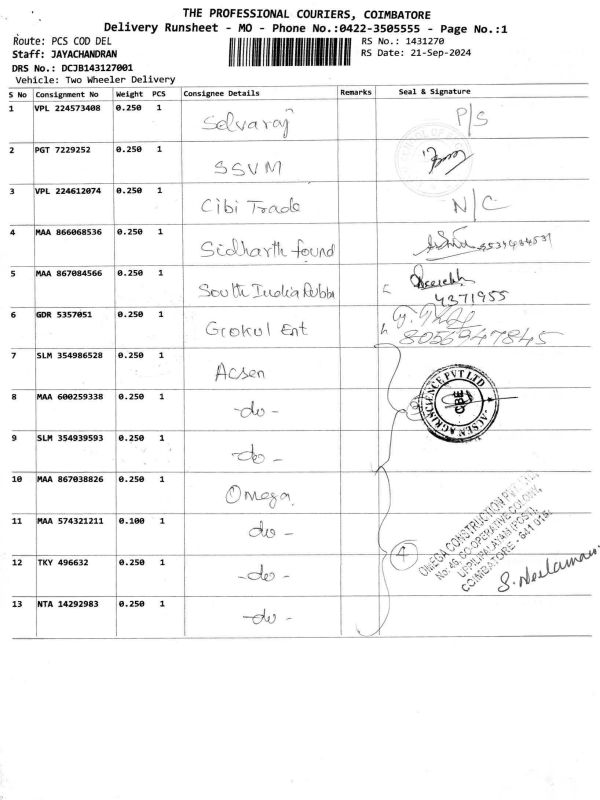 THE PROFESSIONAL COURIERS, COIMBATORE
Delivery Runsheet - MO - Phone No.:0422-3505555 - Page No.:1
Route: PCS COD DEL
RS No.: 1431270
Staff: JAYACHANDRAN
RS Date: 21-Sep-2024
DRS No.: DCJB143127001
Vehicle: Two Wheeler Delivery
S No Consignment No Weight PCS Consignee Details Remarks Seal & Signature
1 VPL 224573408 0.250 1 Selvaraj P/S
2 PGT 7229252 0.250 1 SSVM
3 VPL 224612074 0.250 1 Cibi Trade N/C
4 MAA 866068536 0.250 1 Sidharth found
5 MAA 867084566 0.250 1 South India Rubbi 4371955
6 GDR 5357051 0.250 1 Gokul Ent 8056947845
7 SLM 354986528 0.250 1 Acsen
8 MAA 600259338 0.250 1 -do-
9 SLM 354939593 0.250 1 -do-
ACSEN AGRISCIENCE PVT LTD
CBE
10 MAA 867038826 0.250 1 Omega
11 MAA 574321211 0.100 1 -do-
12 TKY 496632 0.250 1 -do-
13 NTA 14292983 0.250 1 -do-
4
OMEGA CONSTRUCTION PVT
No: 49, CO-OPERATIVE COLONY,
UPPILIPALAYAM (POST),
COIMBATORE - 641 015.